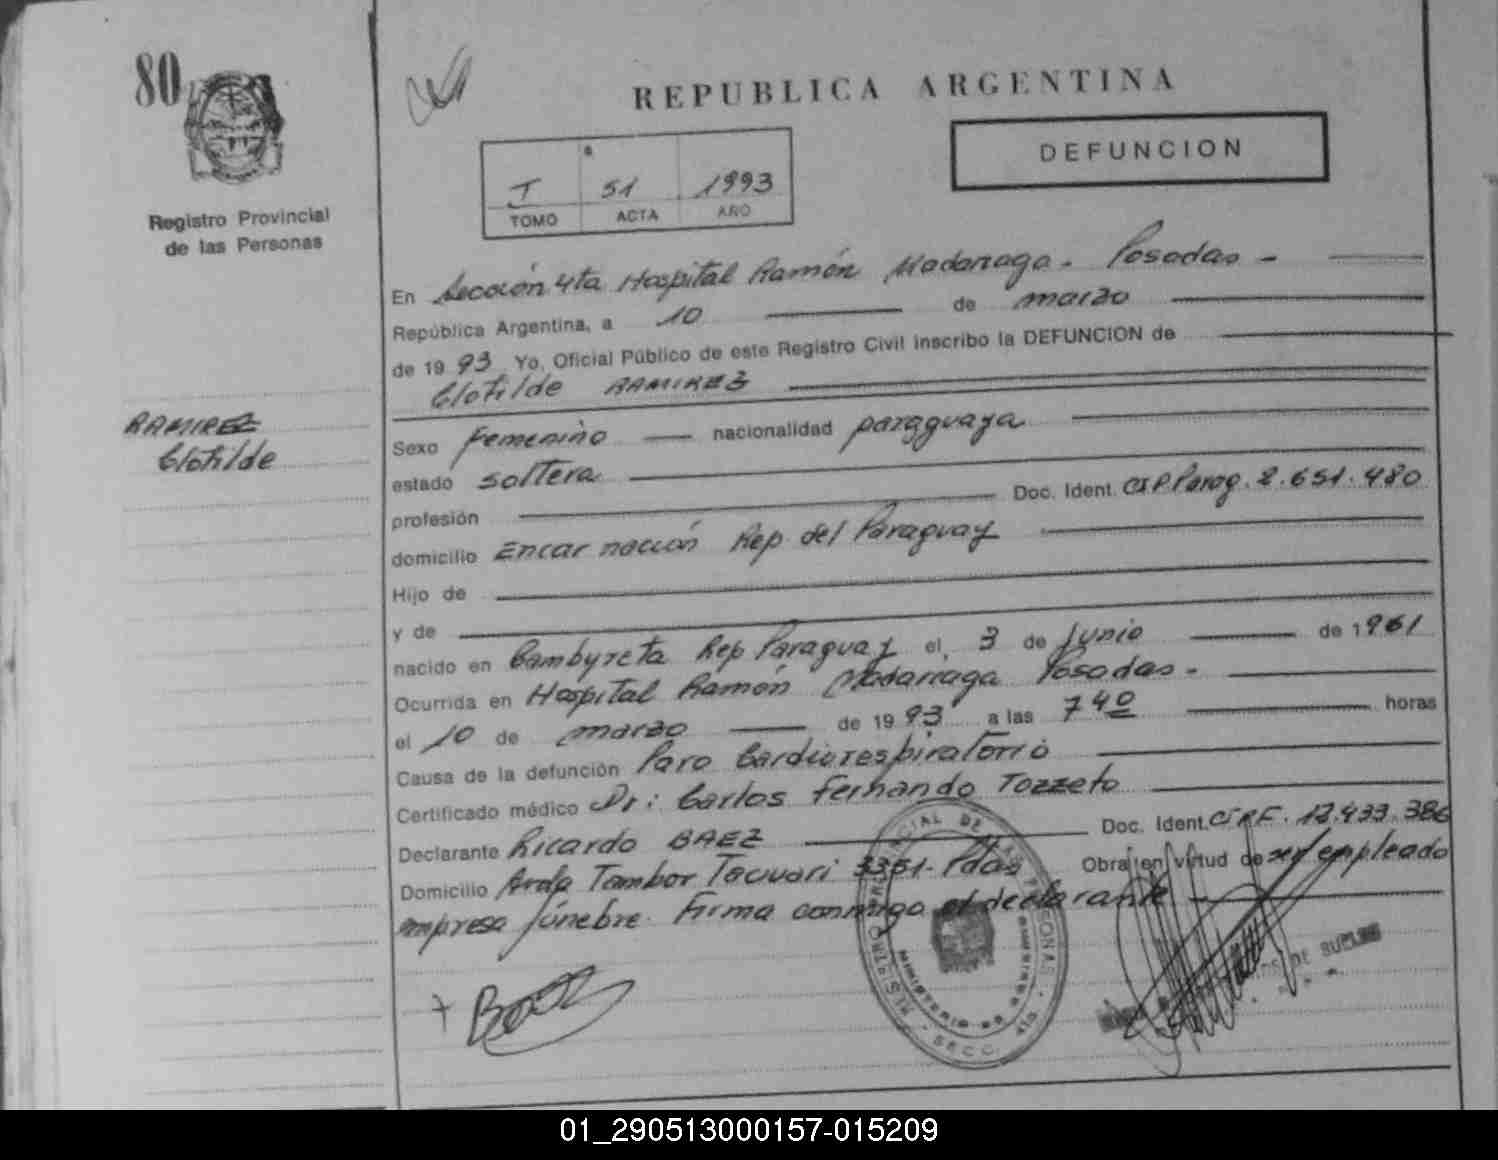 80
REPUBLICA ARGENTINA
DEFUNCION
I 51 1993
TOMO ACTA AÑO
Registro Provincial
de las Personas
En Sección 4ta Hospital Ramón Madariaga - Posadas -
República Argentina, a 10 de marzo
de 1993 Yo, Oficial Público de este Registro Civil inscribo la DEFUNCION de
Clotilde RAMIREZ
RAMIREZ
Clotilde
Sexo femenino nacionalidad paraguaya
estado soltera
profesión Doc. Ident. CIP Parag. 2.651.480
domicilio Encarnación Rep del Paraguay
Hijo de
y de
nacido en Cambyreta Rep Paraguay el, 3 de Junio de 1961
Ocurrida en Hospital Ramón Madariaga Posadas -
el 10 de marzo de 1993 a las 7 40 horas
Causa de la defunción Paro Cardiorespiratorio
Certificado médico Dr: Carlos Fernando Tozzeto
Declarante Ricardo BAEZ Doc. Ident. CIPF. 12.433.386
Domicilio Avda Tambor Tacuari 3351- Pdas Obra en virtud de ser empleado
empresa fúnebre. Firma conmigo el declarante
REGISTRO PROVINCIAL DE LAS PERSONAS
MINISTERIO DE GOBIERNO
SECC. 4ta
01_290513000157-015209